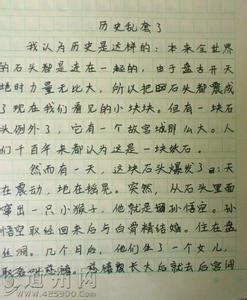 历史乱套了
我认为历史是这样的：本来全世界
的石头都是连在一起的，由于盘古开天
地时力量无比大，所以把石头都震成
了现在我们看见的小块块。但有一块石
头例外了，它有一个故宫城那么大。人
们千百年来都认为这是一块纸石。
然而有一天，这块石头爆发了：天
在震动，地在摇晃。突然，从石头里面
窜出一只小猴子，他就是猴孙悟空。孙
悟空取经回来后与白骨精结婚。住在盘
丝洞。几个月后，他们生了一个女儿，
取名叫慈禧。慈禧长大后就去后宫
道州网
www.425300.com